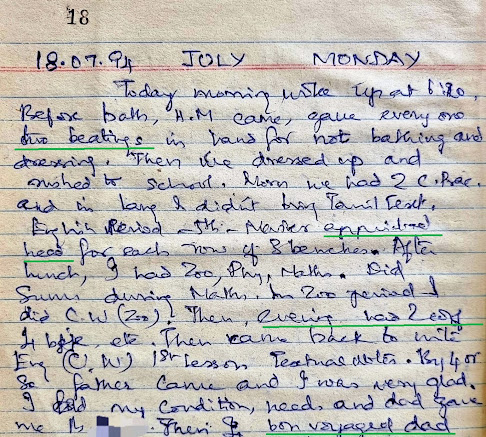 18
18.07.94 JULY MONDAY
Today morning woke up at 6:20,
Before bath, H.M came, gave every one
two beatings in hand for not bathing and
dressing. Then we dressed up and
rushed to school. Morn we had 2 C. Prac.
and in lang I didn't bring Tamil Text.
English Period - 5th - Master appointed
head for each row of 8 benches. After
lunch, I had Zoo, Phy, Maths. Did
Sums during Maths. In Zoo period I
did C.W (Zoo). Then, evening had 2
etc. Then came back to write
Eng (C.W) 1st Lesson Textual notes. By 4 or
So father came and I was very glad.
I told my condition, needs and dad gave
me Rs Then I bon voyaged dad